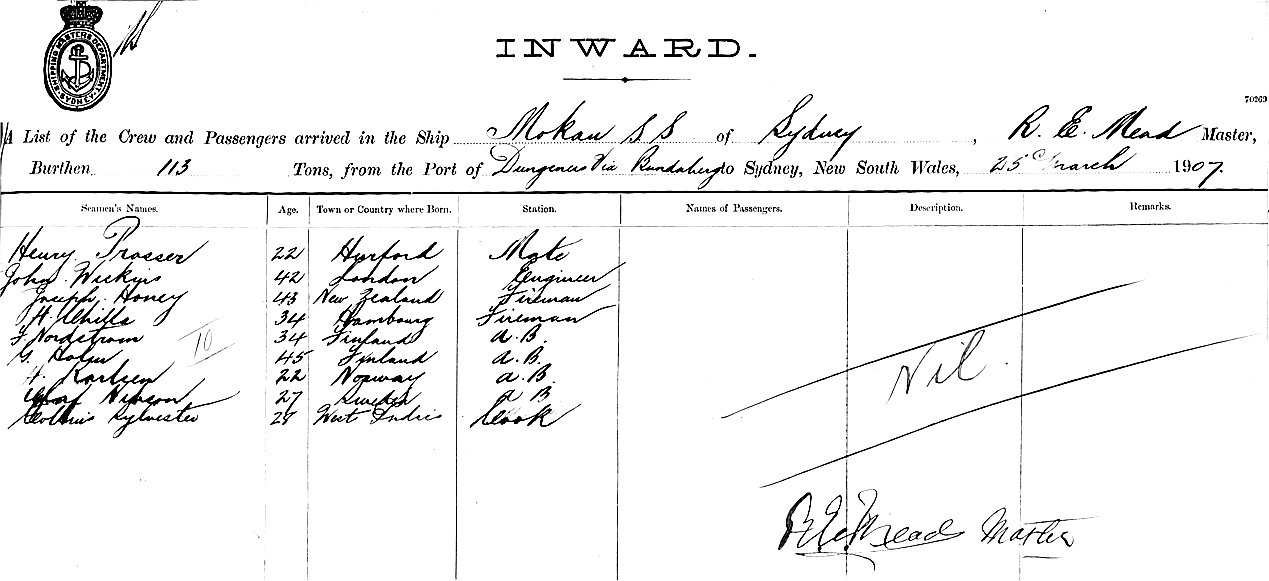 SHIPPING MASTERS DEPARTMENT SYDNEY
INWARD.
70269
A List of the Crew and Passengers arrived in the Ship Mokau SS of Sydney, R. E. Mead Master,
Burthen 113 Tons, from the Port of Dungeness Via Bundaberg to Sydney, New South Wales, 25 March 1907.
Seamen's Names. Age. Town or Country where Born. Station. Names of Passengers. Description. Remarks.
Henry Prosser 22 Mate
John Wickins 42 London Engineer
Joseph Honey 43 New Zealand Fireman
H. 34 Hambourg Fireman
F. Nordstrom 34 Finland a.B.
G. 45 Finland a.B.
H. Karlsen 22 Norway a.B.
27 Sweden a B
Collins Sylvester 28 West Indies Cook
10
Nil.
R E Mead Master